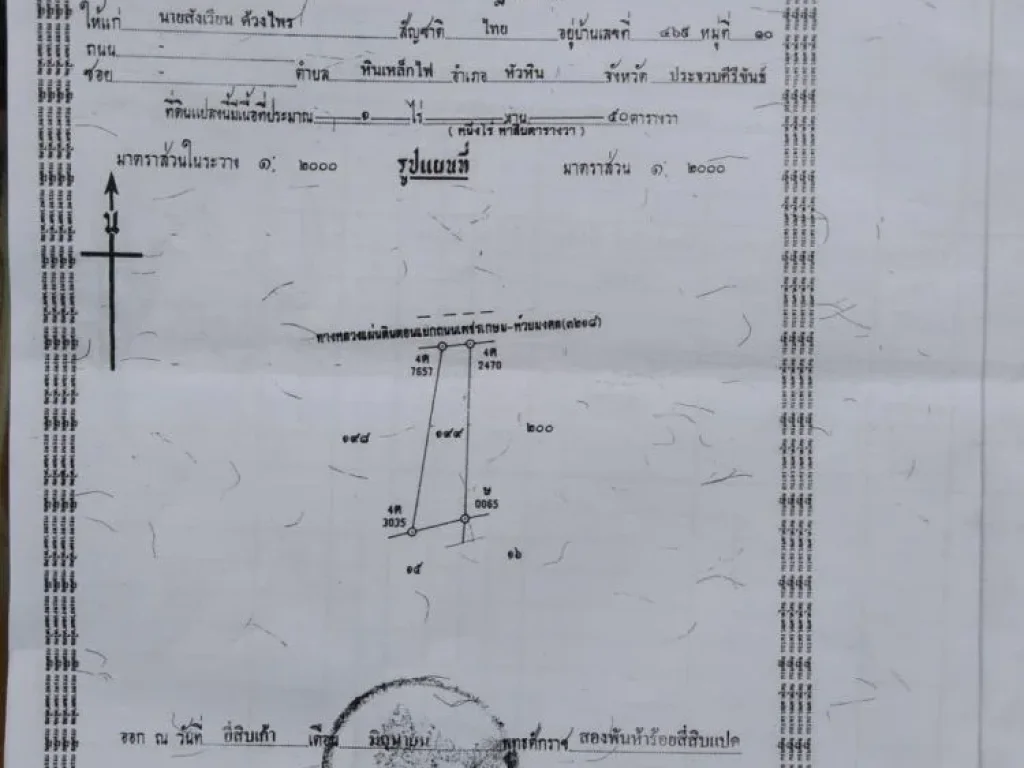 ให้แก่ นายสังเวียน ด้วงไพร สัญชาติ ไทย อยู่บ้านเลขที่ ๔๖๕ หมู่ที่ ๑๐
ถนน -
ซอย - ตำบล หินเหล็กไฟ อำเภอ หัวหิน จังหวัด ประจวบคีรีขันธ์
ที่ดินแปลงนี้มีเนื้อที่ประมาณ ๑ ไร่ งาน ๕๐ ตารางวา
( หนึ่งไร่ ห้าสิบตารางวา )
มาตราส่วนในระวาง ๑: ๒๐๐๐ รูปแผนที่ มาตราส่วน ๑: ๒๐๐๐
น
ทางหลวงแผ่นดินตอนแยกถนนเพชรเกษม-ห้วยมงคล(๓๒๑๘)
4ศ 4ศ
7657 2470
๑๙๘ ๑๙๙ ๒๐๐
4ศ ษ
3035 0065
๑๕ ๑๖
ออก ณ วันที่ ยี่สิบเก้า เดือน มิถุนายน พุทธศักราช สองพันห้าร้อยสี่สิบแปด